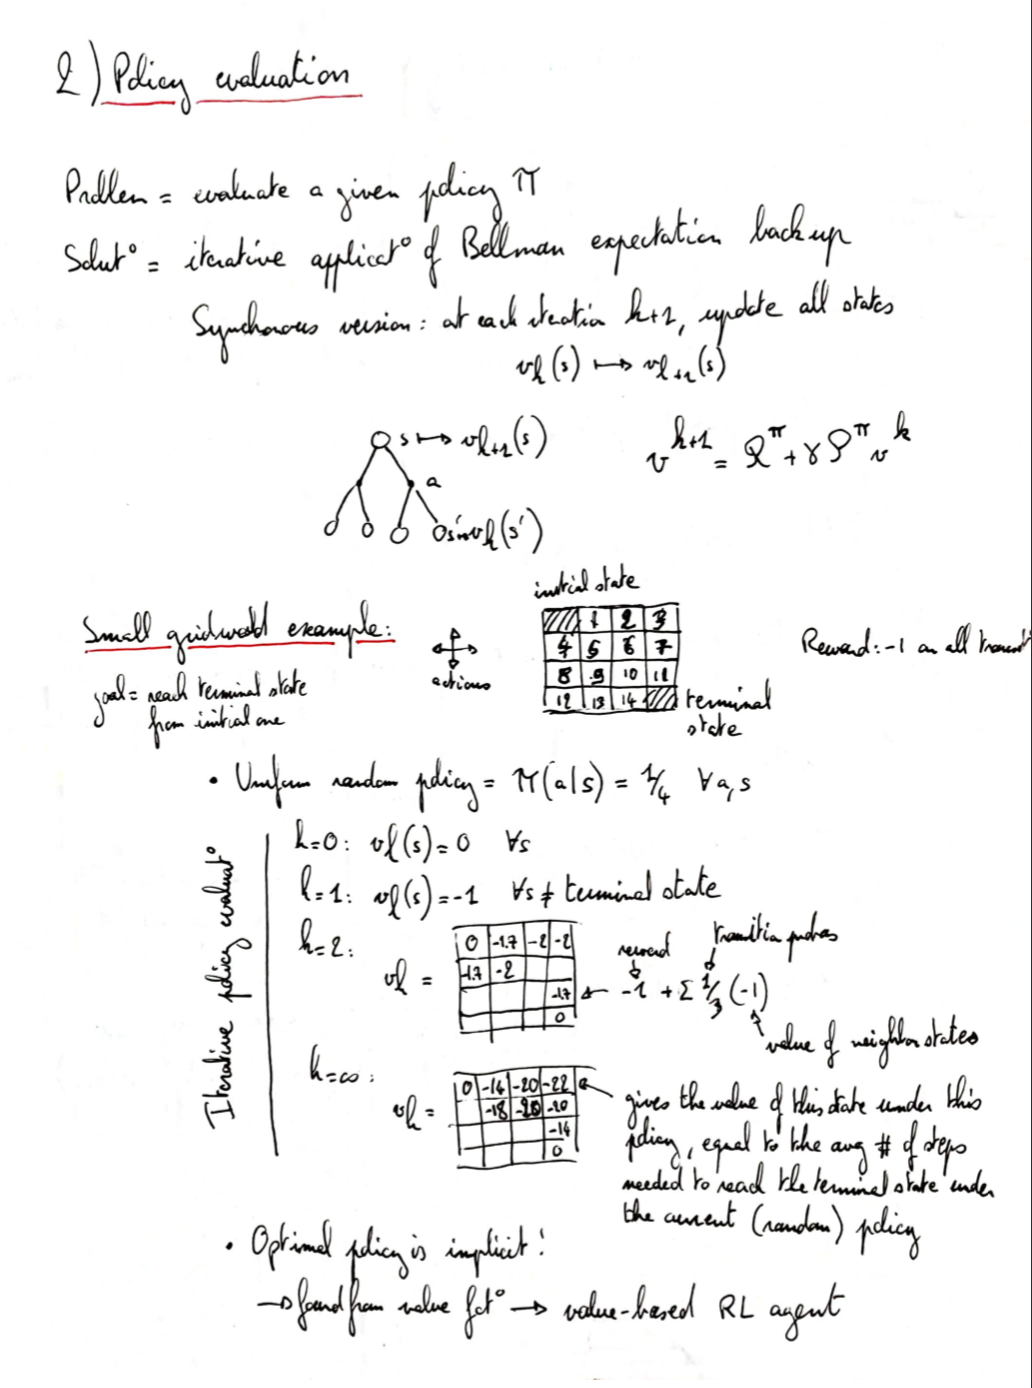 2) Policy evaluation
Problem = evaluate a given policy π
Solut° = iterative applicat° of Bellman expectation backup
Synchronous version: at each iteration k+1, update all states
vk(s) ↦ vk+1(s)
s ↦ vk+1(s)
v^{k+1} = R^π + γ P^π v^k
a
s' ↦ vk(s')
initial state
Small gridworld example:
actions
1 2 3
4 5 6 7
8 9 10 11
12 13 14
Reward: -1 on all transit
goal = reach terminal state
from initial one
terminal
state
• Uniform random policy = π(a|s) = 1/4 ∀a,s
Iterative policy evaluat°
k=0: vk(s) = 0 ∀s
k=1: vk(s) = -1 ∀s ≠ terminal state
k=2:
vk =
0 -1.7 -2 -2
-1.7 -2
-1.7
0
reward
transition probas
-1 + Σ 1/3 (-1)
value of neighbor states
k=∞:
vk =
0 -14 -20 -22
-18 -20 -20
-14
0
gives the value of this state under this
policy, equal to the avg # of steps
needed to reach the terminal state under
the current (random) policy
• Optimal policy is implicit!
→ found from value fct° → value-based RL agent